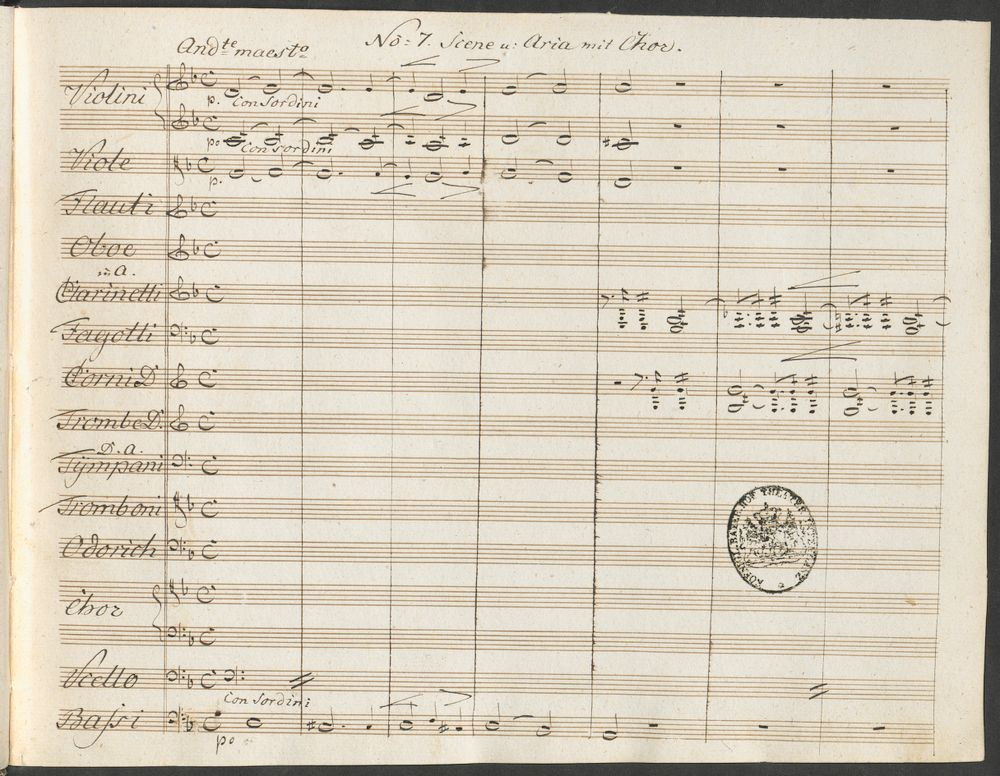 No: 7. Scene u: Aria mit Chor.
Andte maesto
Violini
p. Con Sordini
po Con Sordini
Viole
p.
Flauti
Oboe
in A.
Clarinetti
Fagotti
Corni D
Trombe D.
D. a.
Tÿmpani
Tromboni
Odorich
Chor
Vcello
Con Sordini
Bassi
po